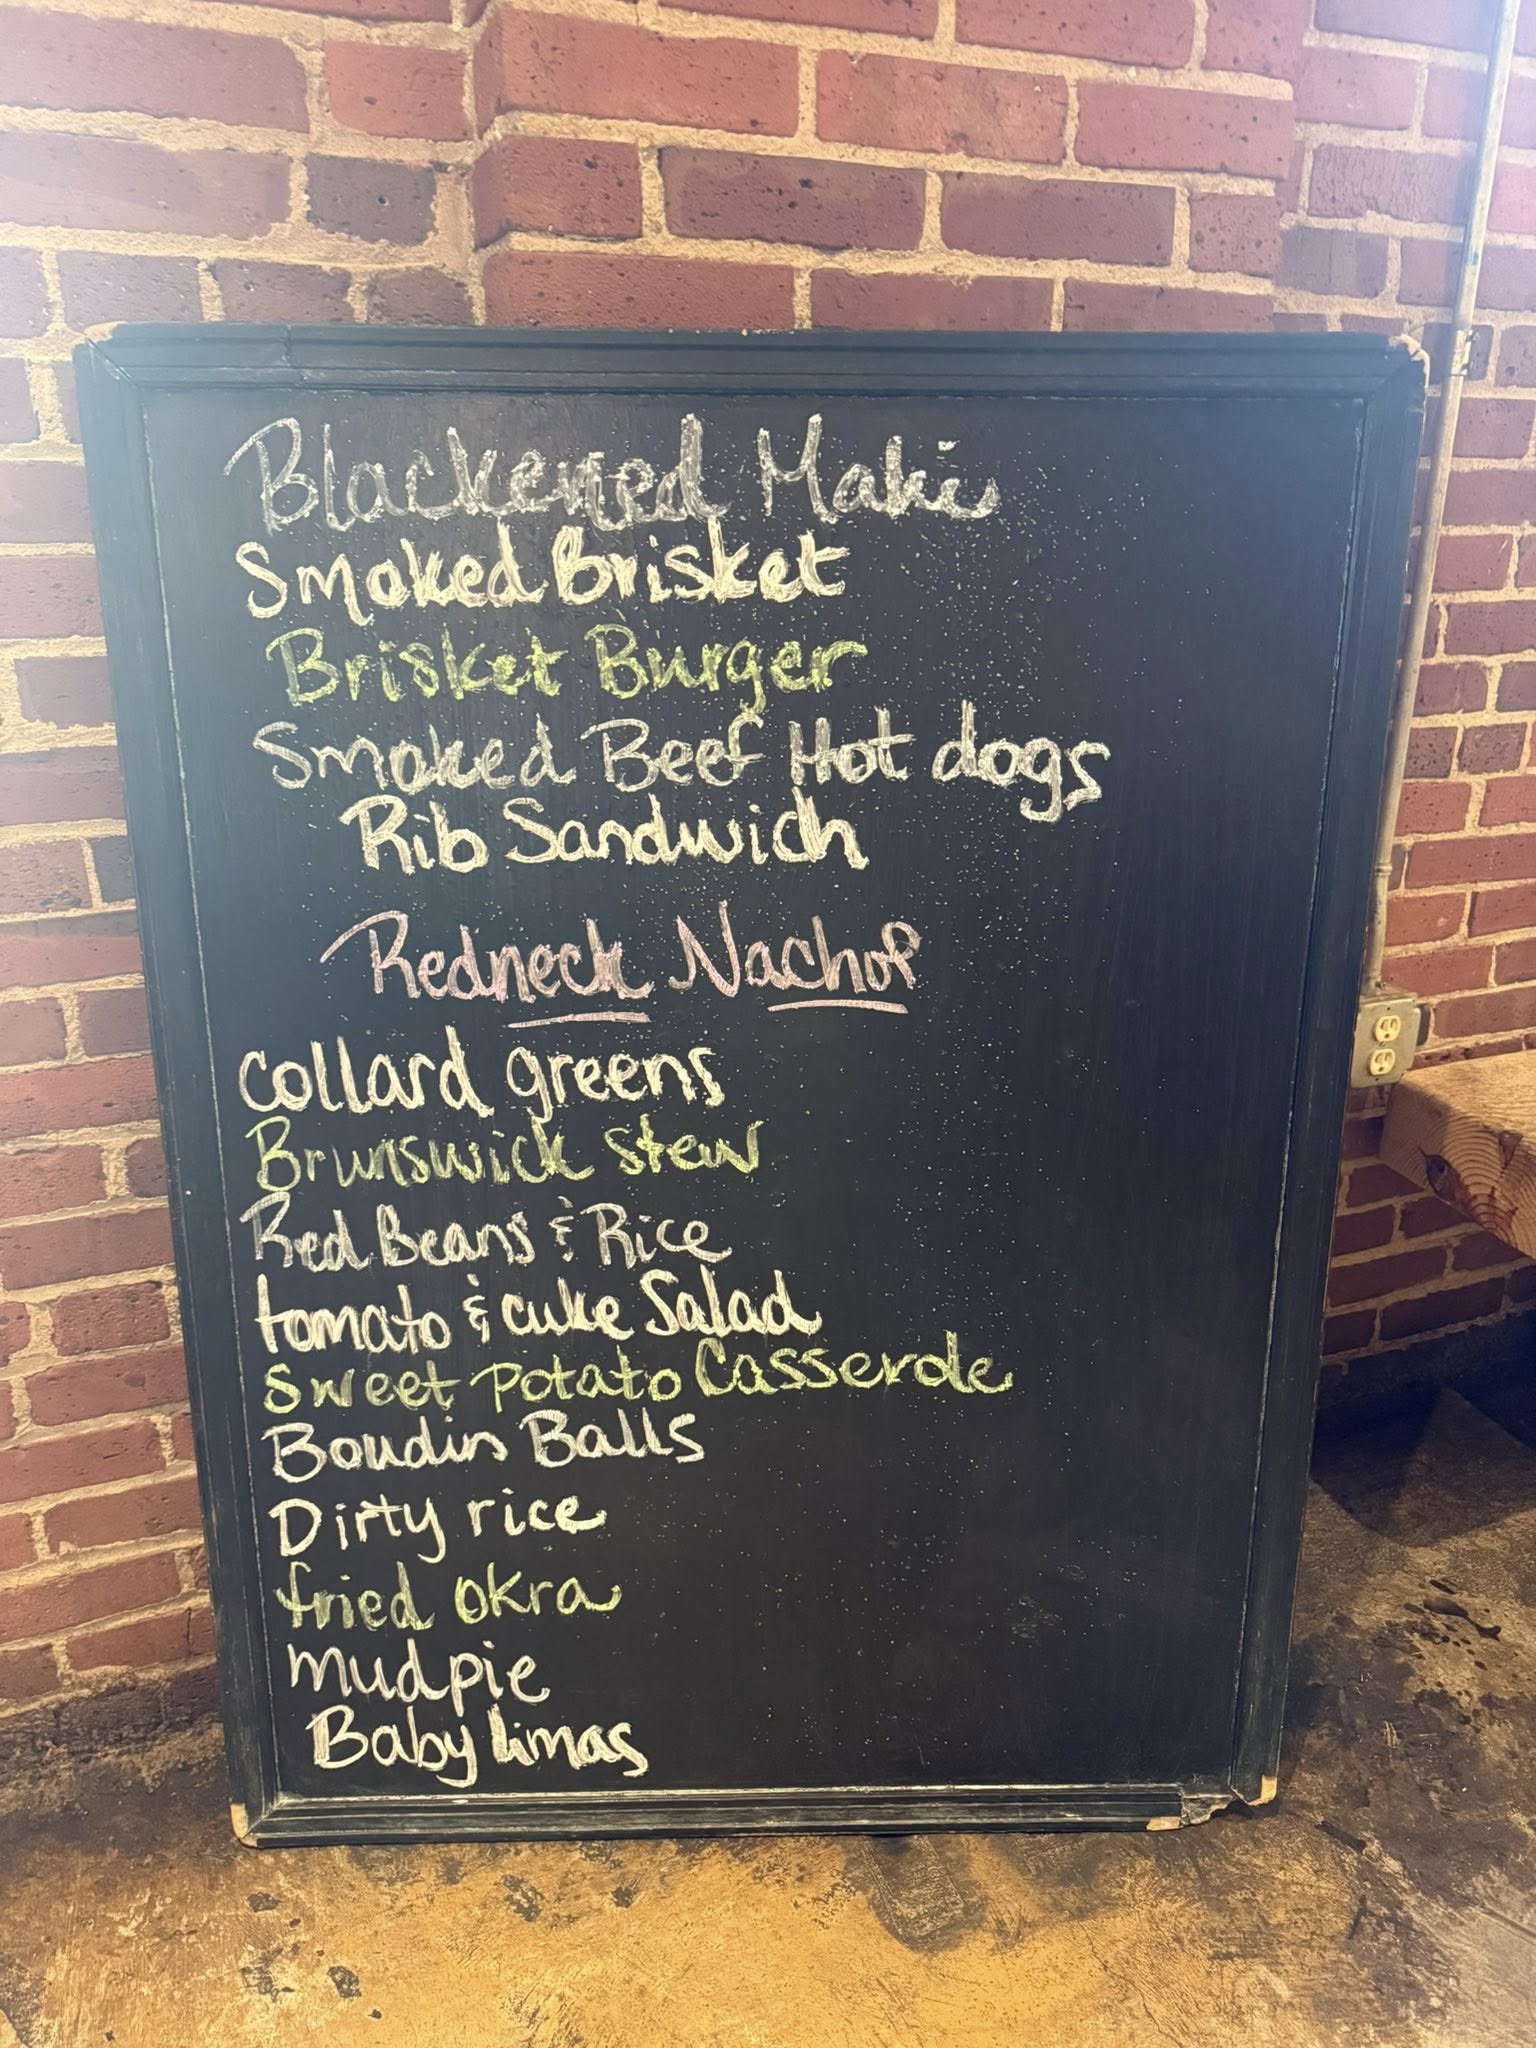 Blackened Mahi
Smoked Brisket
Brisket Burger
Smoked Beef Hot dogs
Rib Sandwich
Redneck Nachos
Collard greens
Brunswick stew
Red Beans & Rice
tomato & cuke Salad
Sweet Potato Casserole
Boudin Balls
Dirty rice
fried okra
mudpie
Baby limas